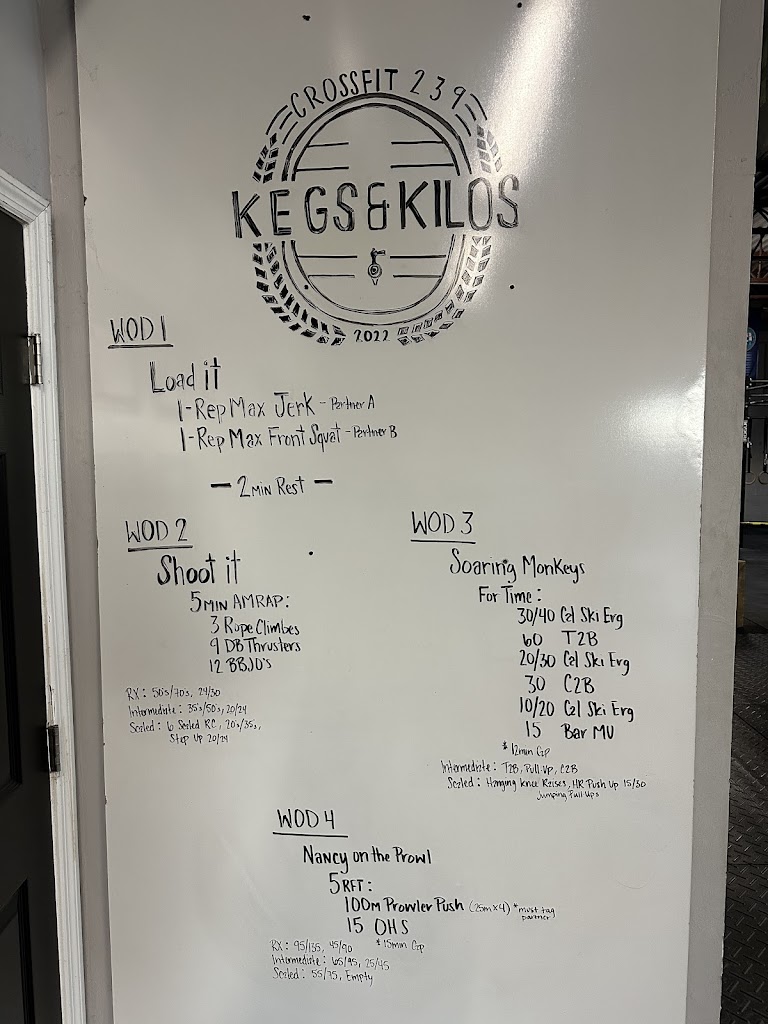 CROSSFIT 239
KEGS & KILOS
2022
WOD 1
Load it
1-Rep Max Jerk - Partner A
1-Rep Max Front Squat - Partner B
- 2 min Rest -
WOD 2
Shoot it
5 min AMRAP:
3 Rope Climbes
9 DB Thrusters
12 BBJO's
RX: 50's/70's, 24/30
Intermediate: 35's/50's, 20/24
Scaled: 6 Scaled RC, 20's/35s,
Step Up 20/24
WOD 3
Soaring Monkeys
For Time:
30/40 Cal Ski Erg
60 T2B
20/30 Cal Ski Erg
30 C2B
10/20 Cal Ski Erg
15 Bar MU
* 12min Cap
Intermediate: T2B, Pull-Up, C2B
Scaled: Hanging Knee Raises, HR Push Up 15/30
Jumping Pull-Ups
WOD 4
Nancy on the Prowl
5 RFT:
100m Prowler Push (25m x 4) *must tag
partner
15 OHS
* 15min Cap
RX: 95/135, 45/90
Intermediate: 65/95, 25/45
Scaled: 55/75, Empty